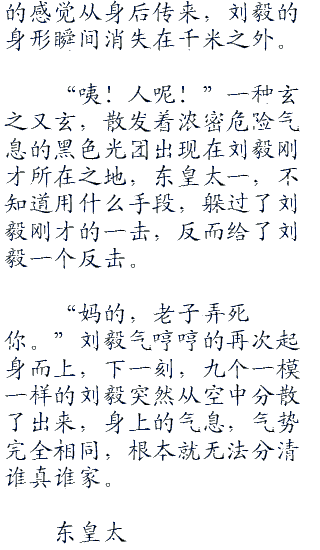 的感觉从身后传来，刘毅的
身形瞬间消失在千米之外。
“咦！人呢！”一种玄
之又玄，散发着浓密危险气
息的黑色光团出现在刘毅刚
才所在之地，东皇太一，不
知道用什么手段，躲过了刘
毅刚才的一击，反而给了刘
毅一个反击。
“妈的，老子弄死
你。”刘毅气哼哼的再次起
身而上，下一刻，九个一模
一样的刘毅突然从空中分散
了出来，身上的气息，气势
完全相同，根本就无法分清
谁真谁家。
东皇太